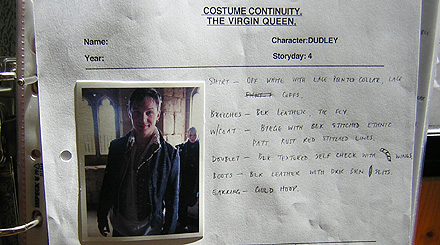 COSTUME CONTINUITY.
THE VIRGIN QUEEN.
Name: Character: DUDLEY
Year: Storyday: 4
SHIRT - OFF WHITE WITH LACE POINTED COLLAR LACE
CUFFS.
BREECHES - BLK LEATHER, TIE FLY.
W/COAT - BIEGE WITH BLK STITCHED ETHNIC
PATT RUST RED STITCHED LINES.
DOUBLET - BLK TEXTURED SELF CHECK WITH WINGS
BOOTS - BLK LEATHER WITH DRK SKN SLITS.
EARRING - GOLD HOOP.